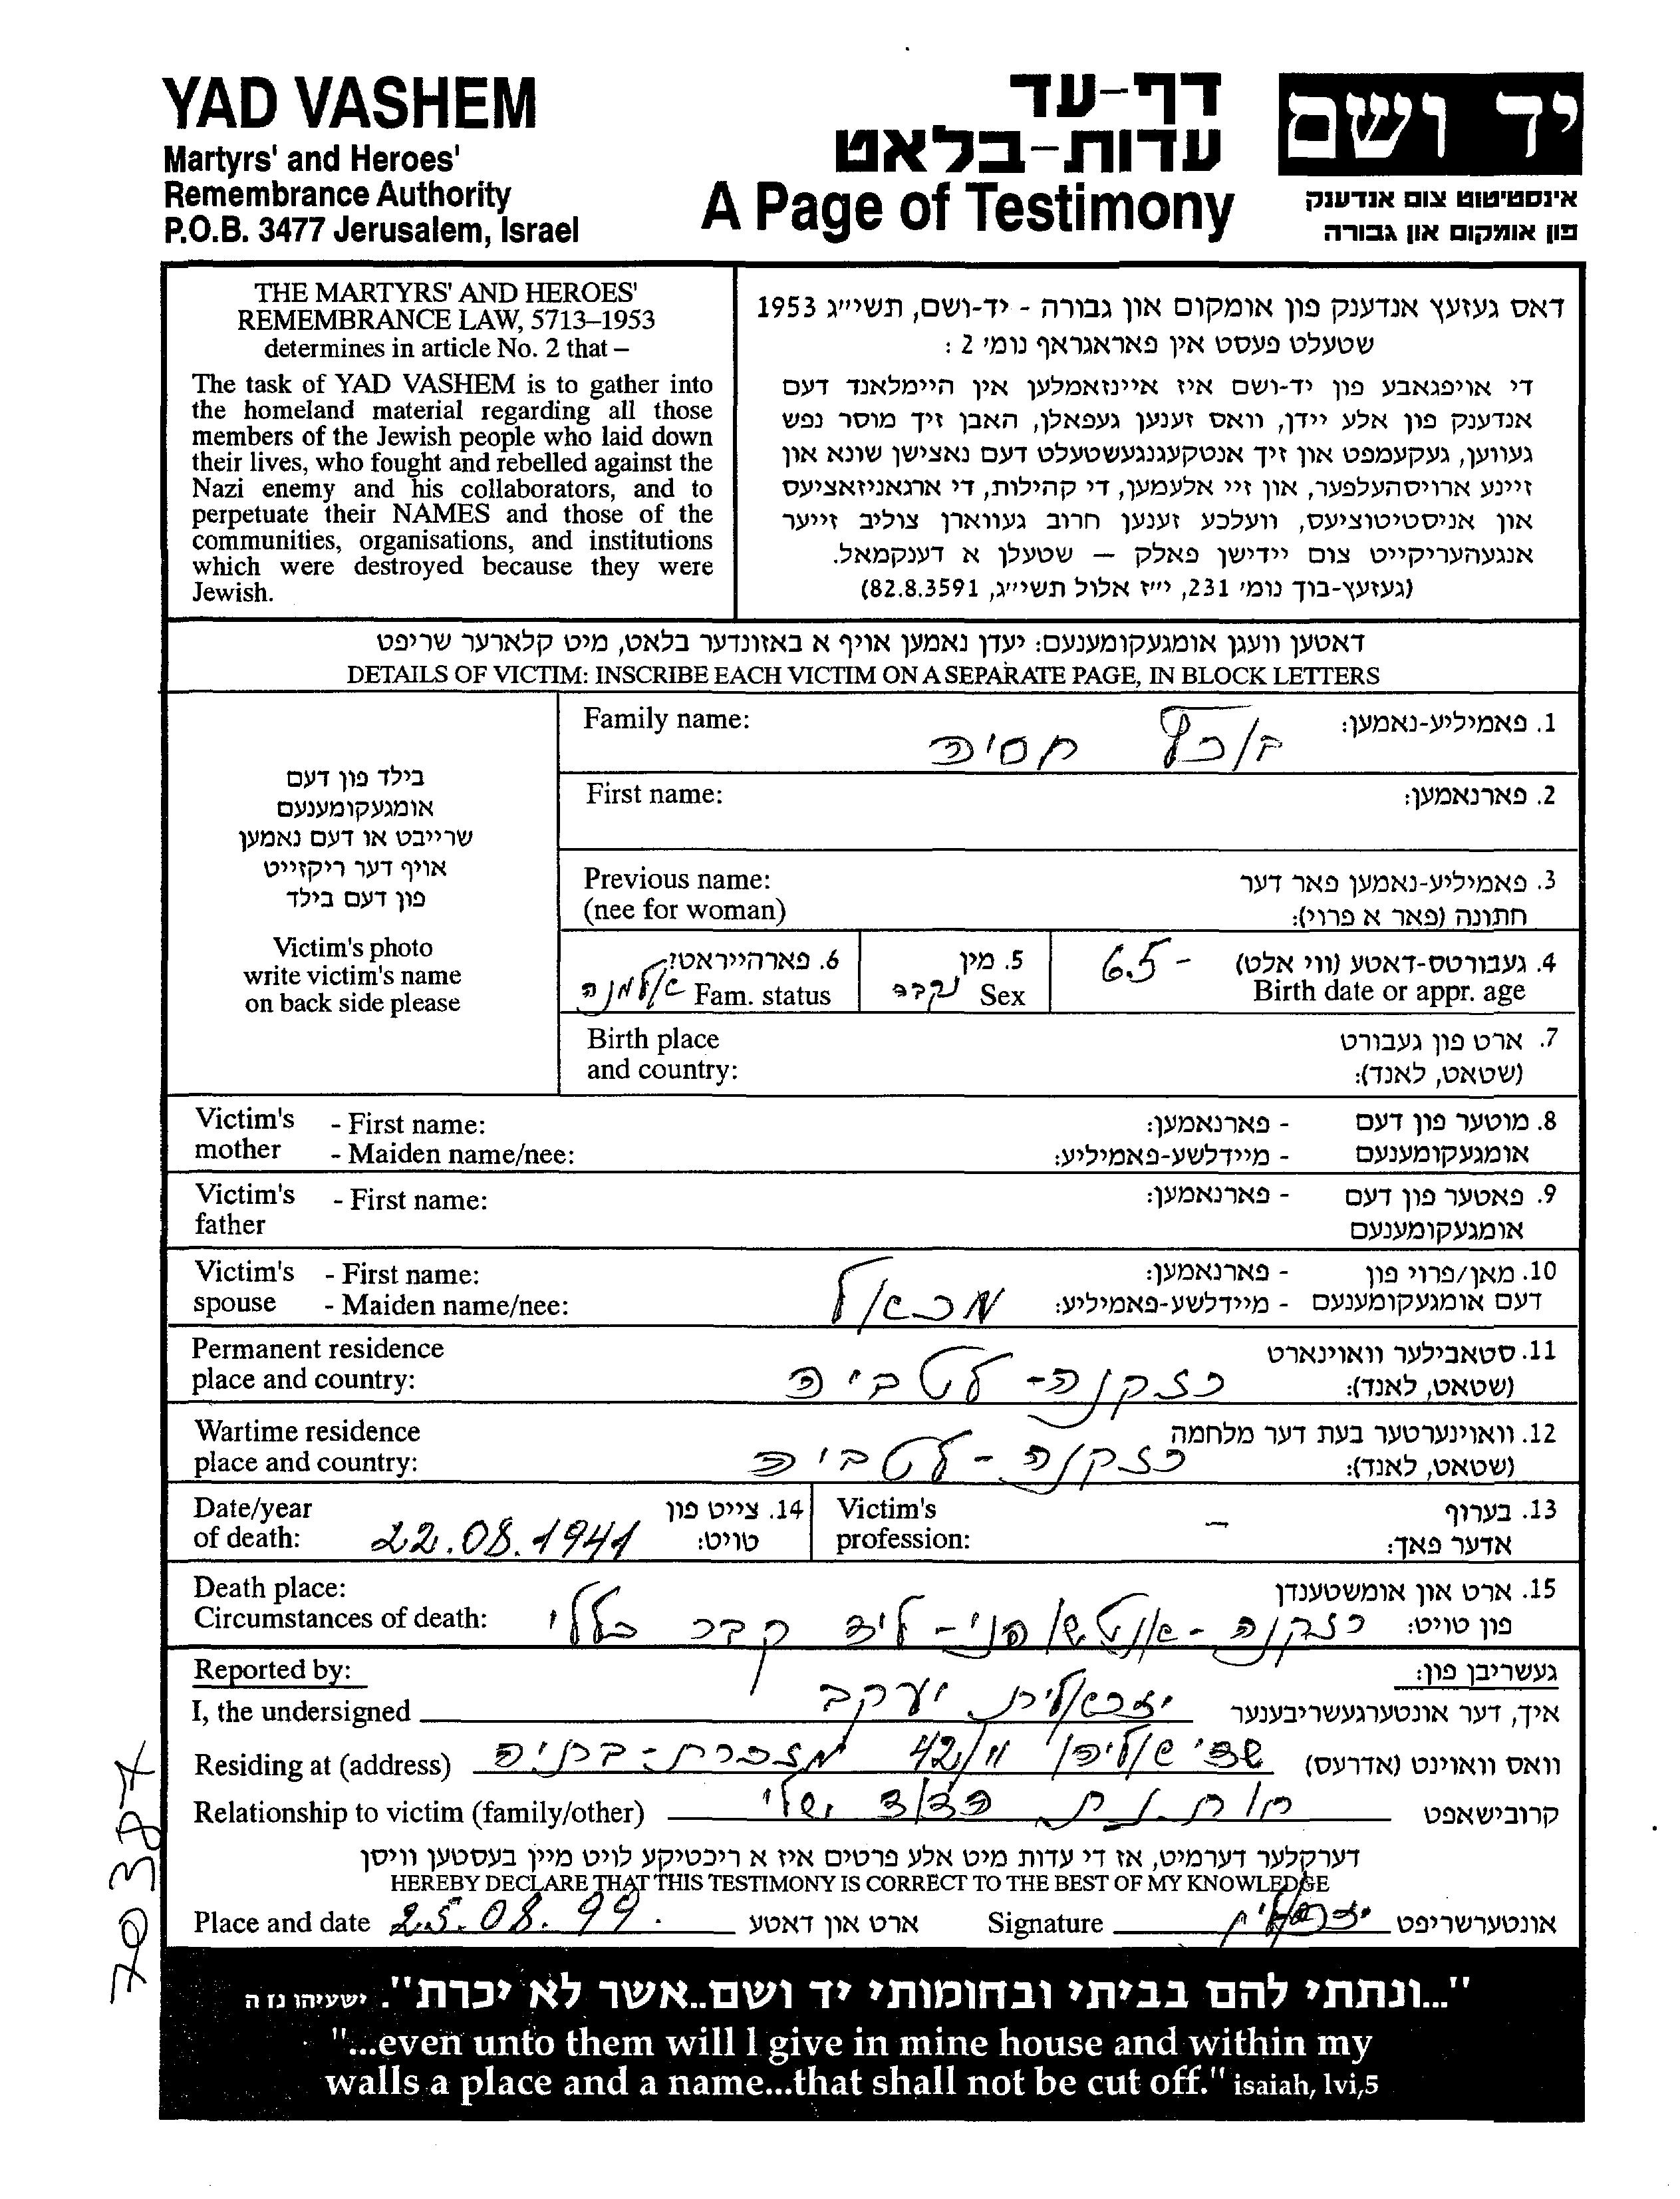 YAD VASHEM
Martyrs' and Heroes'
Remembrance Authority
P.O.B. 3477 Jerusalem, Israel
דף-עד
עדות-בלאט
A Page of Testimony
יד ושם
אינסטיטוט צום אנדענק
פון אומקום און גבורה
THE MARTYRS' AND HEROES'
REMEMBRANCE LAW, 5713–1953
determines in article No. 2 that –
The task of YAD VASHEM is to gather into
the homeland material regarding all those
members of the Jewish people who laid down
their lives, who fought and rebelled against the
Nazi enemy and his collaborators, and to
perpetuate their NAMES and those of the
communities, organisations, and institutions
which were destroyed because they were
Jewish.
דאס געזעץ אנדענק פון אומקום און גבורה - יד-ושם, תשי״ג 1953
שטעלט פעסט אין פאראגראף נומ׳ 2 :
די אויפגאבע פון יד-ושם איז איינזאמלען אין היימלאנד דעם
אנדענק פון אלע יידן, וואס זענען געפאלן, האבן זיך מוסר נפש
געווען, געקעמפט און זיך אנטקעגנגעשטעלט דעם נאצישן שונא און
זיינע ארויסהעלפער, און זיי אלעמען, די קהילות, די ארגאניזאציעס
און אניסטיטוציעס, וועלכע זענען חרוב געווארן צוליב זייער
אנגעהעריקייט צום יידישן פאלק – שטעלן א דענקמאל.
(געזעץ-בוך נומ׳ 231, י״ז אלול תשי״ג, 82.8.3591)
דאטען וועגן אומגעקומענעם: יעדן נאמען אויף א באזונדער בלאט, מיט קלארער שריפט
DETAILS OF VICTIM: INSCRIBE EACH VICTIM ON A SEPARATE PAGE, IN BLOCK LETTERS
בילד פון דעם
אומגעקומענעם
שרייבט או דעם נאמען
אויף דער ריקזייט
פון דעם בילד
Victim's photo
write victim's name
on back side please
Family name: חסיה 1. פאמיליע-נאמען:
First name: 2. פארנאמען:
Previous name: 3. פאמיליע-נאמען פאר דער
(nee for woman) חתונה (פאר א פרוי):
6. פארהייראט? 5. מין 65 - 4. געבורטס-דאטע (ווי אלט)
אלמנה Fam. status נקבה Sex Birth date or appr. age
Birth place 7. ארט פון געבורט
and country: (שטאט, לאנד):
Victim's - First name: - פארנאמען: 8. מוטער פון דעם
mother - Maiden name/nee: - מיידלשע-פאמיליע: אומגעקומענעם
Victim's - First name: - פארנאמען: 9. פאטער פון דעם
father אומגעקומענעם
Victim's - First name: - פארנאמען: 10. מאן/פרוי פון
spouse - Maiden name/nee: מכאל - מיידלשע-פאמיליע: דעם אומגעקומענעם
Permanent residence 11. סטאבילער וואוינארט
place and country: רזקנה - לטביה (שטאט, לאנד):
Wartime residence 12. וואוינערטער בעת דער מלחמה
place and country: רזקנה - לטביה (שטאט, לאנד):
Date/year 14. צייט פון Victim's 13. בערוף
of death: 22.08.1941 טויט: profession: – אדער פאך:
Death place: 15. ארט און אומשטענדן
Circumstances of death: רזקנה - ליד קבר כללי פון טויט:
Reported by: געשריבן פון:
I, the undersigned יזראלית יעקב איך, דער אונטערגעשריבענער
Residing at (address) 42/11 מזכרת-בתיה וואס וואוינט (אדרעס)
Relationship to victim (family/other) חותנת הדוד שלי קרובישאפט
דערקלער דערמיט, אז די עדות מיט אלע פרטים איז א ריכטיקע לויט מיין בעסטען וויסן
HEREBY DECLARE THAT THIS TESTIMONY IS CORRECT TO THE BEST OF MY KNOWLEDGE
Place and date 25.08.99. ארט און דאטע Signature אונטערשריפט
"...ונתתי להם בביתי ובחומותי יד ושם..אשר לא יכרת". ישעיהו נז ה
"...even unto them will I give in mine house and within my
walls a place and a name...that shall not be cut off." isaiah, lvi,5